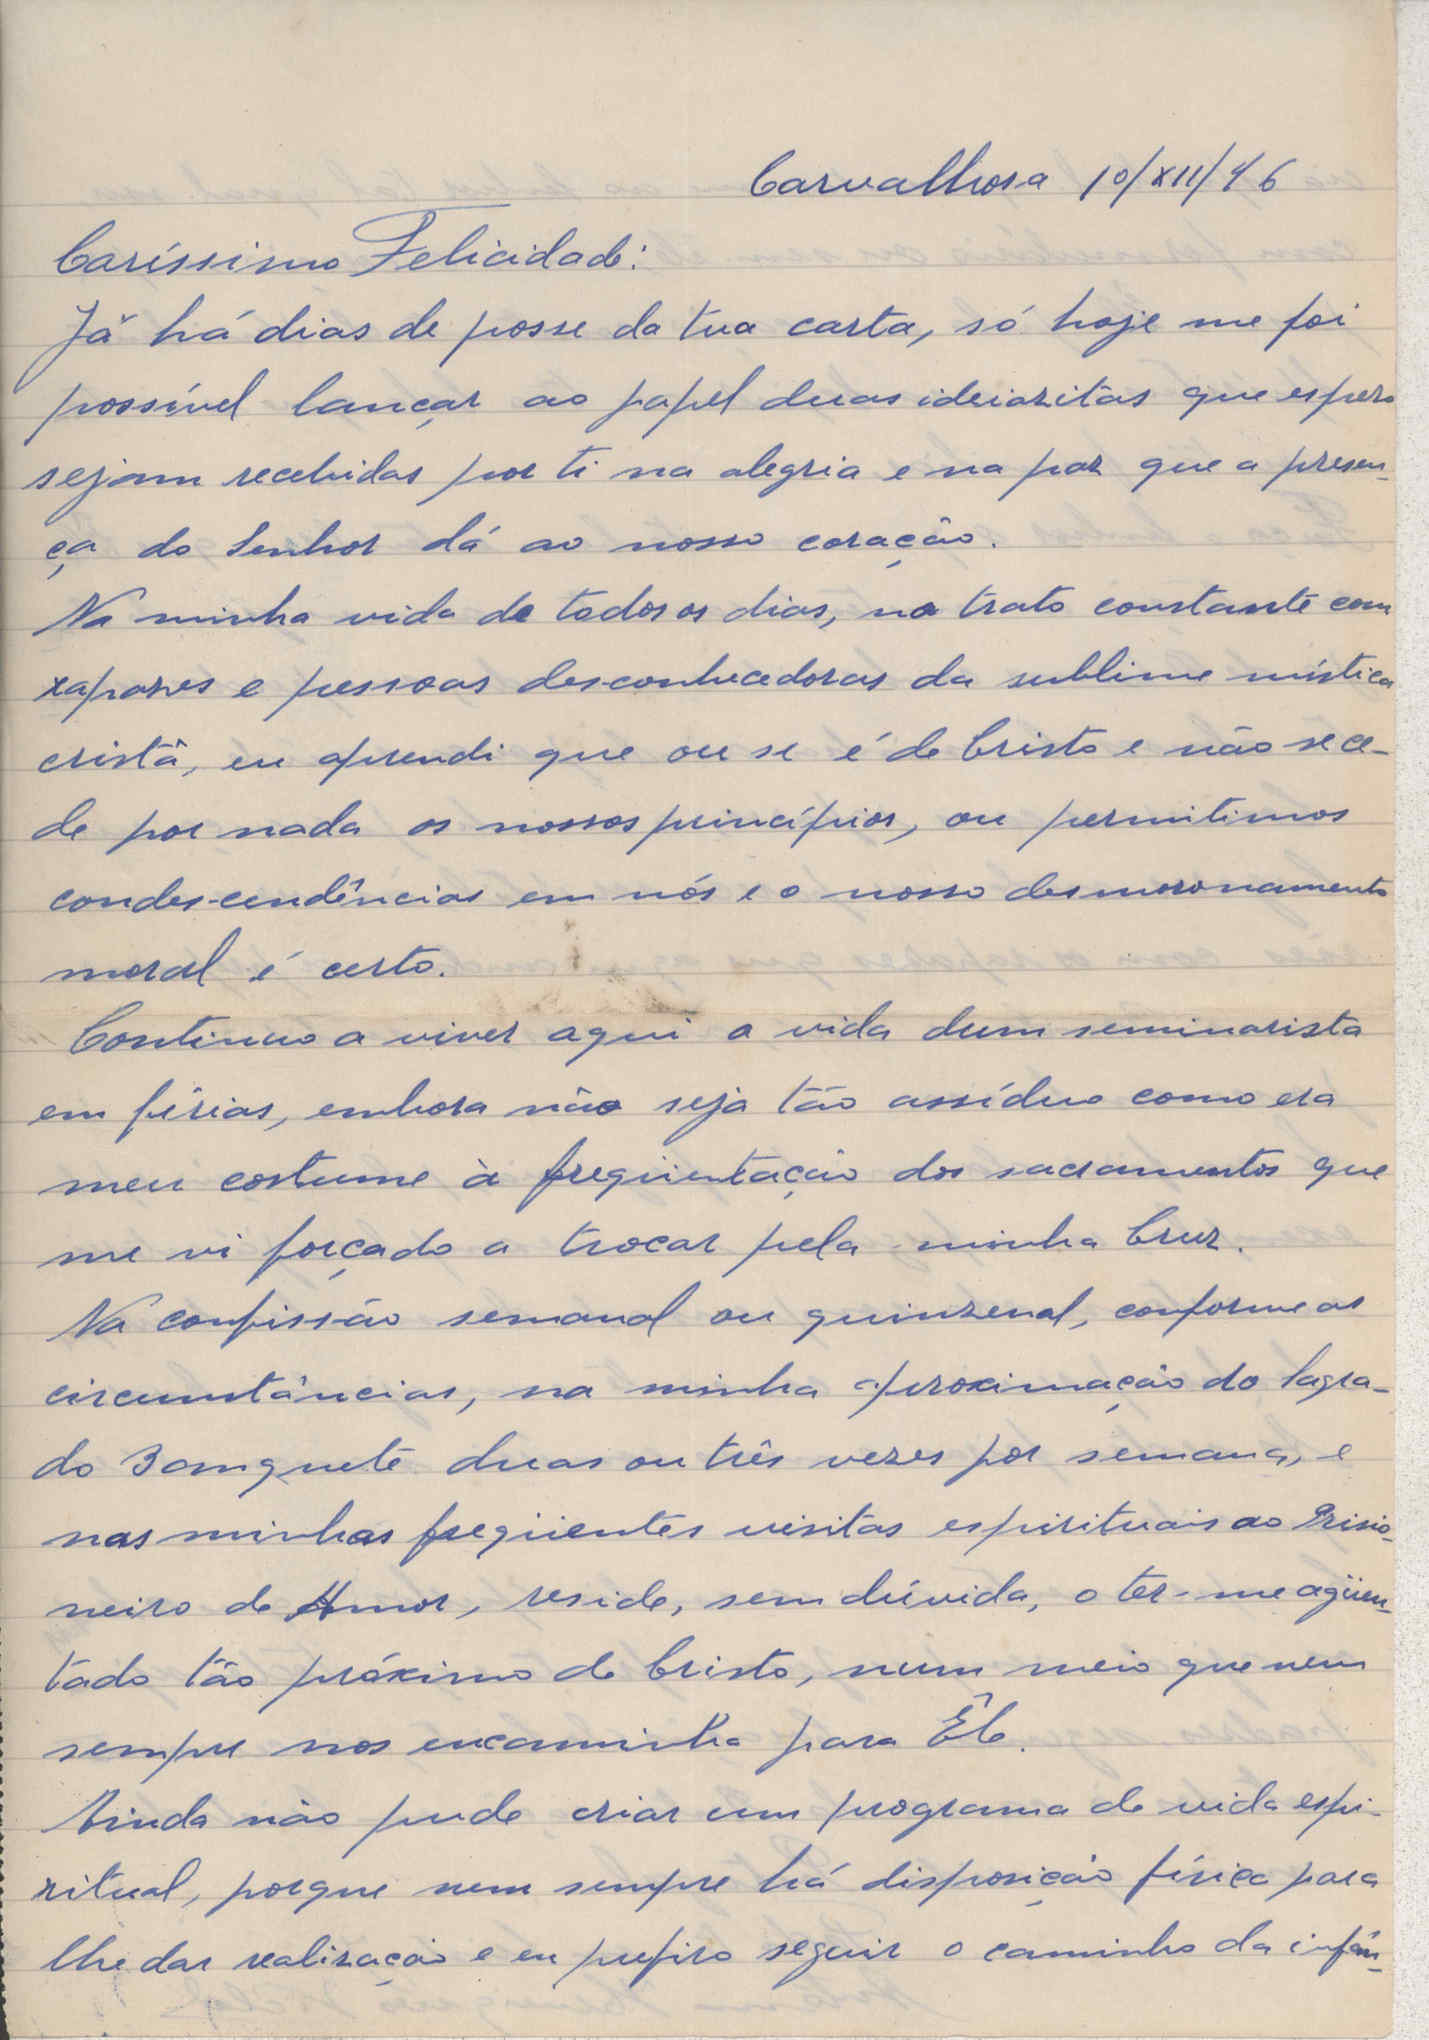 Carvalhosa 10/XII/46
Caríssimo Felicidade:
Já há dias de posse da tua carta, só hoje me foi
possível lançar ao papel duas ideiazitas que espero
sejam recebidas por ti na alegria e na paz que a presen-
ça do Senhor dá ao nosso coração.
Na minha vida de todos os dias, no trato constante com
rapazes e pessoas desconhecedoras da sublime mística
cristã, eu aprendi que ou se é de Cristo e não se ce-
de por nada os nossos princípios, ou permitimos
condescendências em nós e o nosso desmoronamento
moral é certo.
Continuo a viver aqui a vida dum seminarista
em férias, embora não seja tão assíduo como era
meu costume à freqüentação dos sacramentos que
me vi forçado a trocar pela minha Cruz.
Na confissão semanal ou quinzenal, conforme as
circunstâncias, na minha aproximação do Sagra-
do Banquete duas ou três vezes por semana, e
nas minhas freqüentes visitas espirituais ao Prisio-
neiro de Amor, reside, sem dúvida, o ter-me agüen-
tado tão próximo de Cristo, num meio que nem
sempre nos encaminha para Êle.
Ainda não pude criar um programa de vida espi-
ritual, porque nem sempre há disposição física para
lhe dar realização e eu prefiro seguir o caminho da infân-